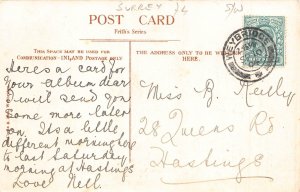 SURREY
POST CARD
Frith's Series
THIS SPACE MAY BE USED FOR
COMMUNICATION - INLAND POSTAGE ONLY
THE ADDRESS ONLY TO BE WRITTEN
HERE.
WEYBRIDGE
Heres a card for
your album dear
I will send you
some more later
on. Its a little
different morning here
to last Saturday
morning at Hastings
Love Nell.
Miss B. Reilly
28 Queens Rd
Hastings